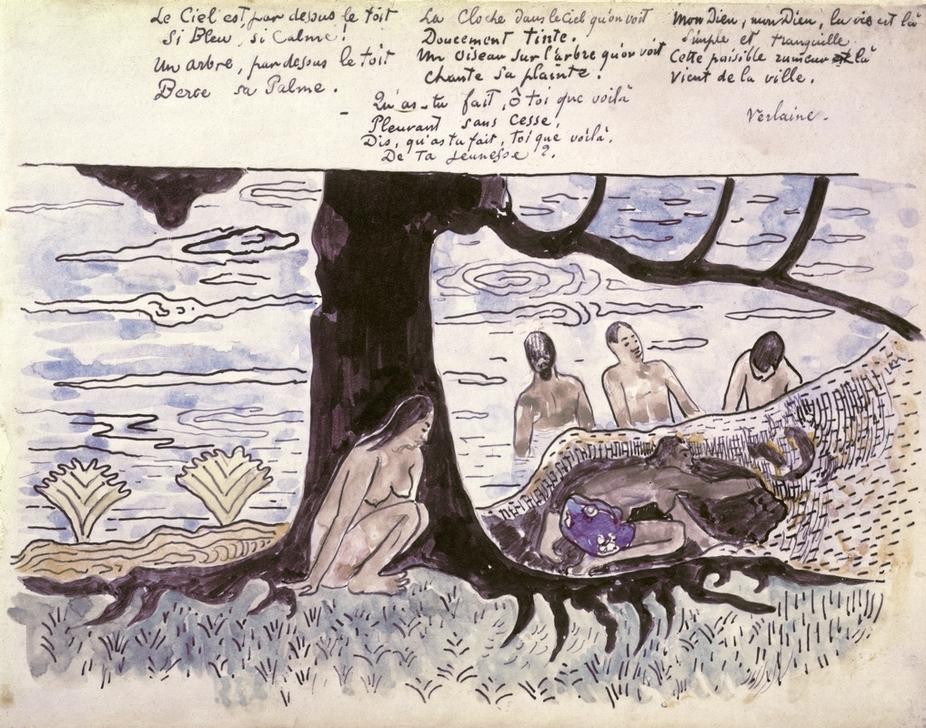 Le Ciel est, par dessus le toit
Si Bleu, si Calme!
Un arbre, par dessus le toit
Berce sa Palme.
La Cloche dans le Ciel qu'on voit
Doucement tinte.
Un oiseau sur l'arbre qu'on voit
Chante sa plainte!
Mon Dieu, mon Dieu, la vie est là
Simple et tranquille.
Cette paisible rumeur là
Vient de la ville.
- Qu'as-tu fait, Ô toi que voilà
Pleurant sans cesse,
Dis, qu'as tu fait, toi que voilà,
De Ta Jeunesse?.
Verlaine.